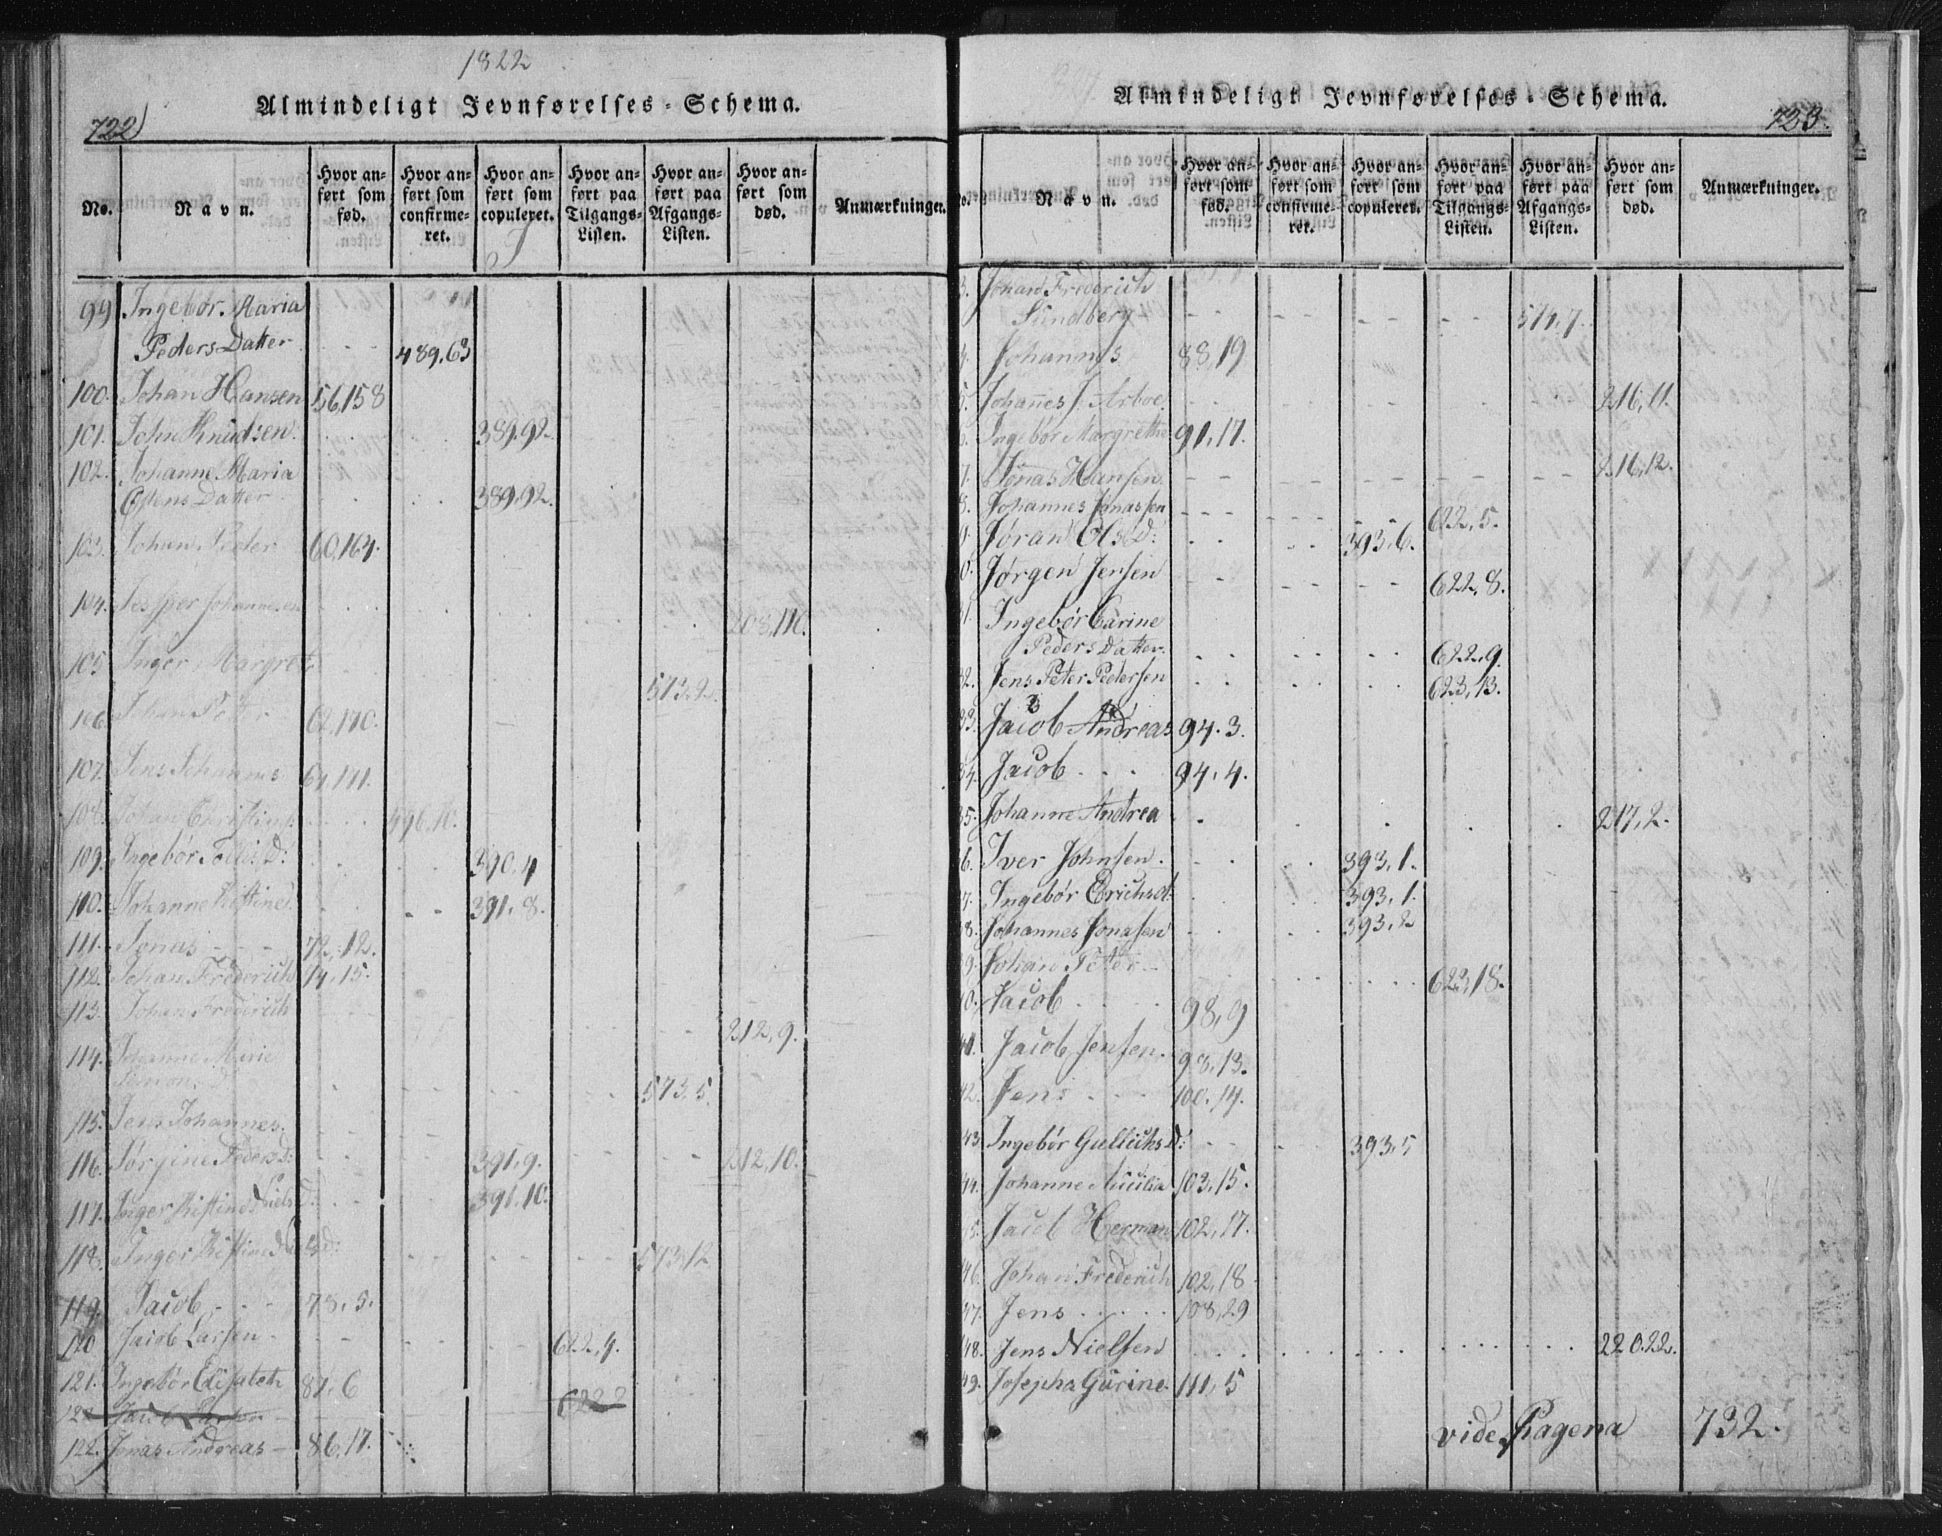 1822
Almindeligt Jevnførelses-Schema.
722)
No.
Navn.
Hvor anført som fød.
Hvor anført som confirmeret.
Hvor anført som copuleret.
Hvor anført paa Tilgangs-Listen.
Hvor anført paa Afgangs-Listen.
Hvor anført som død.
Anmærkninger.
J
99. Ingebør Maria
Peders Datter - - - 489,63
100. Johan Hansen 56,158
101. John Knudsen. 389,92.
102. Johanne Maria
Ostens Datter 389,92.
103. Johan Peder 60,164.
104. Jesper Johannesen 208,110.
105. Inger Margret 573,2.
106. Johan Peter 62,170.
107. Jens Johannes 64,171.
108. Johan Christian 496,10.
109. Ingebør D: 390,4
110. Johanne Kistine 391,8.
111. Jonas - - - 72,12.
112. Johan Frederich 74,15.
113. Johan Frederich 212,9.
114. Johanne Marie
Simon. D 573,5.
115. Jens Johannes. 212,10.
116. Jørgine Peders D: 391,9.
117. Inger Kistine Niels D: 391,10.
118. Inger Kistine Niels D: 573,12
119. Jacob - - - 78,5.
120 Jacob Larsen - 622,4.
121. Ingebør Elisabeth 81,6
122 Jacob Larsen 622 2
122. Jonas Andreas - 86,17.
Almindeligt Jevnførelses-Schema.
723.
No.
Navn.
Hvor anført som fød.
Hvor anført som confirmeret.
Hvor anført som copuleret.
Hvor anført paa Tilgangs-Listen.
Hvor anført paa Afgangs-Listen.
Hvor anført som død.
Anmærkninger.
3. Johan Frederich
Sundberg 574,7.
4. Johannes 88,19
5. Johannes J. Arboe. 216,11.
6. Ingebør Margrethe 91,17.
7. Jonas Hansen. 216,12.
8. Johannes Jonassen 622,5.
9. Jøran Ols D: 393,6.
0. Jørgen Jensen 622,8.
31. Ingebør Carine
Peders Datter. 622,9.
32. Jens Peter Pedersen 623,13.
33. Jacob Andreas 94.3.
34. Jacob - - - 94,4.
35. Johanne Andrea 217,2.
36. Iver Johnsen. 393,1.
37. Ingebør Erichsd: 393,1.
38. Johannes Jonasen 393,2
39. Johan Peter 623,18.
40. Jacob 98,9
41. Jacob Jensen. 98,13.
42. Jens - - - 100,14.
43. Ingebør Gullichs D: 393,5
44. Johanne 103,15.
45. Jacob Herman 102,17.
46. Johan Frederich 102,18
47. Jens . . . . . 108,29
48. Jens Nielsen 220.22.
49. Josepha Gurine. 111,5
vide Pagena 732.